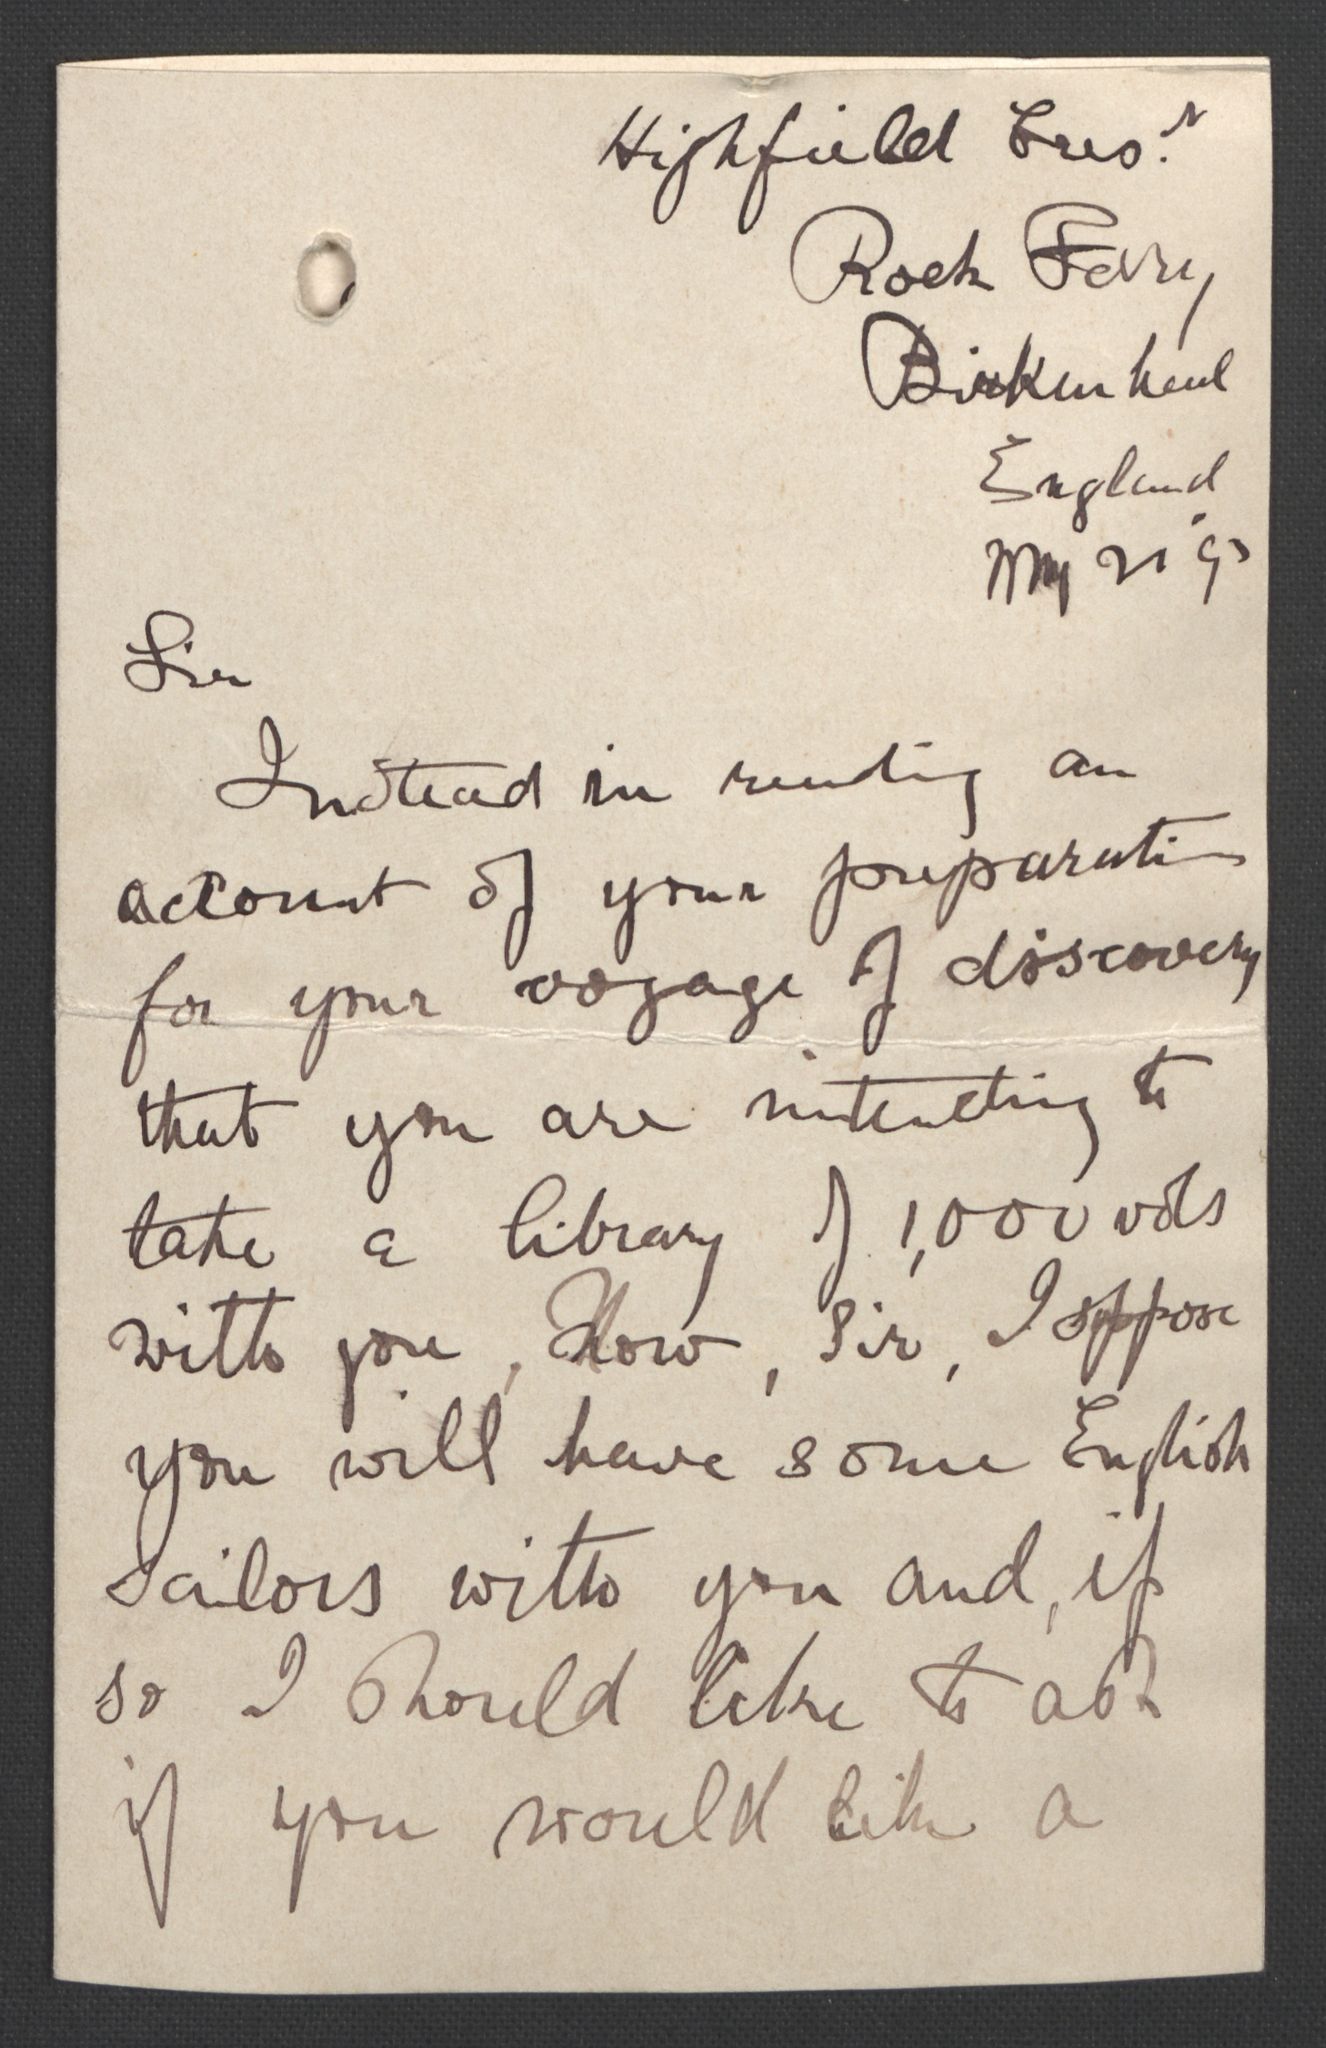 Highfield Cres.t
Rock Ferry
Birkenhead
England
May 21 '93
Sir
Instead in reading an
account of your preparation
for your voyage of discovery
that you are intending to
take a library of 1,000 vols
with you, Now, Sir, I suppose
you will have some English
Sailors with you and, if
so I should like to ask
if you would like a